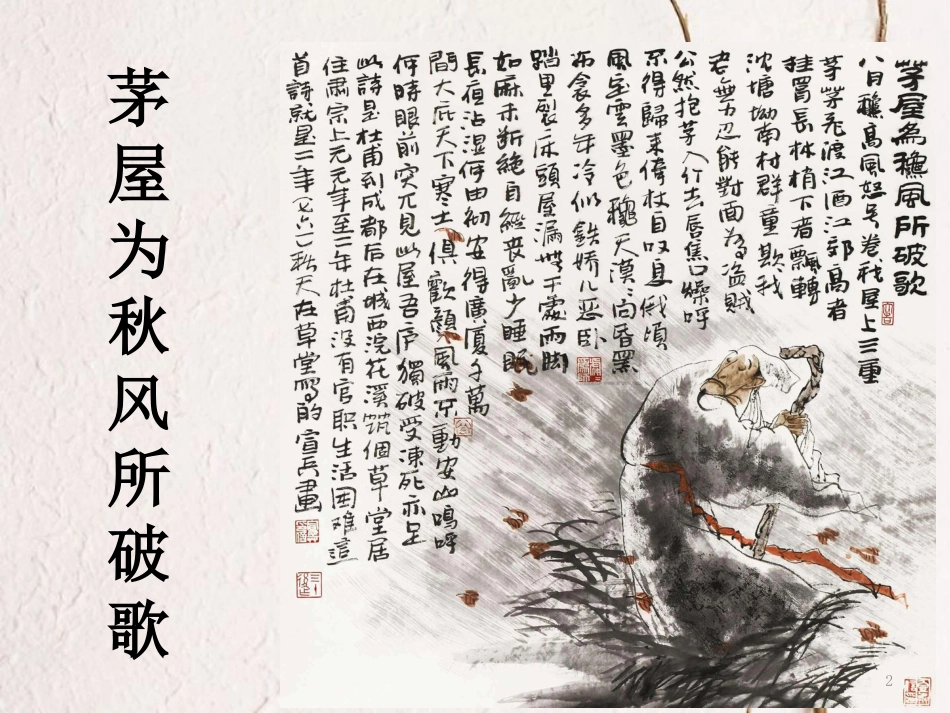 茅屋为秋风所破歌
茅屋為穐風所破歌
八月穐高風怒号卷我屋上三重
茅茅飛渡江洒江郊高者
挂罥長林梢下者飄轉
沈塘坳南村群童欺我
老無力忍能對面為盗賊
公然抱茅入竹去唇焦口燥呼
不得歸来倚杖自叹息俄頃
風定雲墨色穐天漠漠向昏黑
布衾多年冷似鉄嬌儿恶卧
踏里裂床頭屋漏無干處雨脚
如麻未断絶自經丧亂少睡眠
長夜沾湿何由彻安得廣厦千萬
間大庇天下寒士俱歡顔風雨不動安山嗚呼
何時眼前突兀見此屋吾庐獨破受凍死亦足
此詩是杜甫到成都后在城西浣花溪筑個草堂居
住肃宗上元元年至二年杜甫没有官职生活困难這
首詩就是二年(七六一)秋天在草堂写的宣兵畫
2